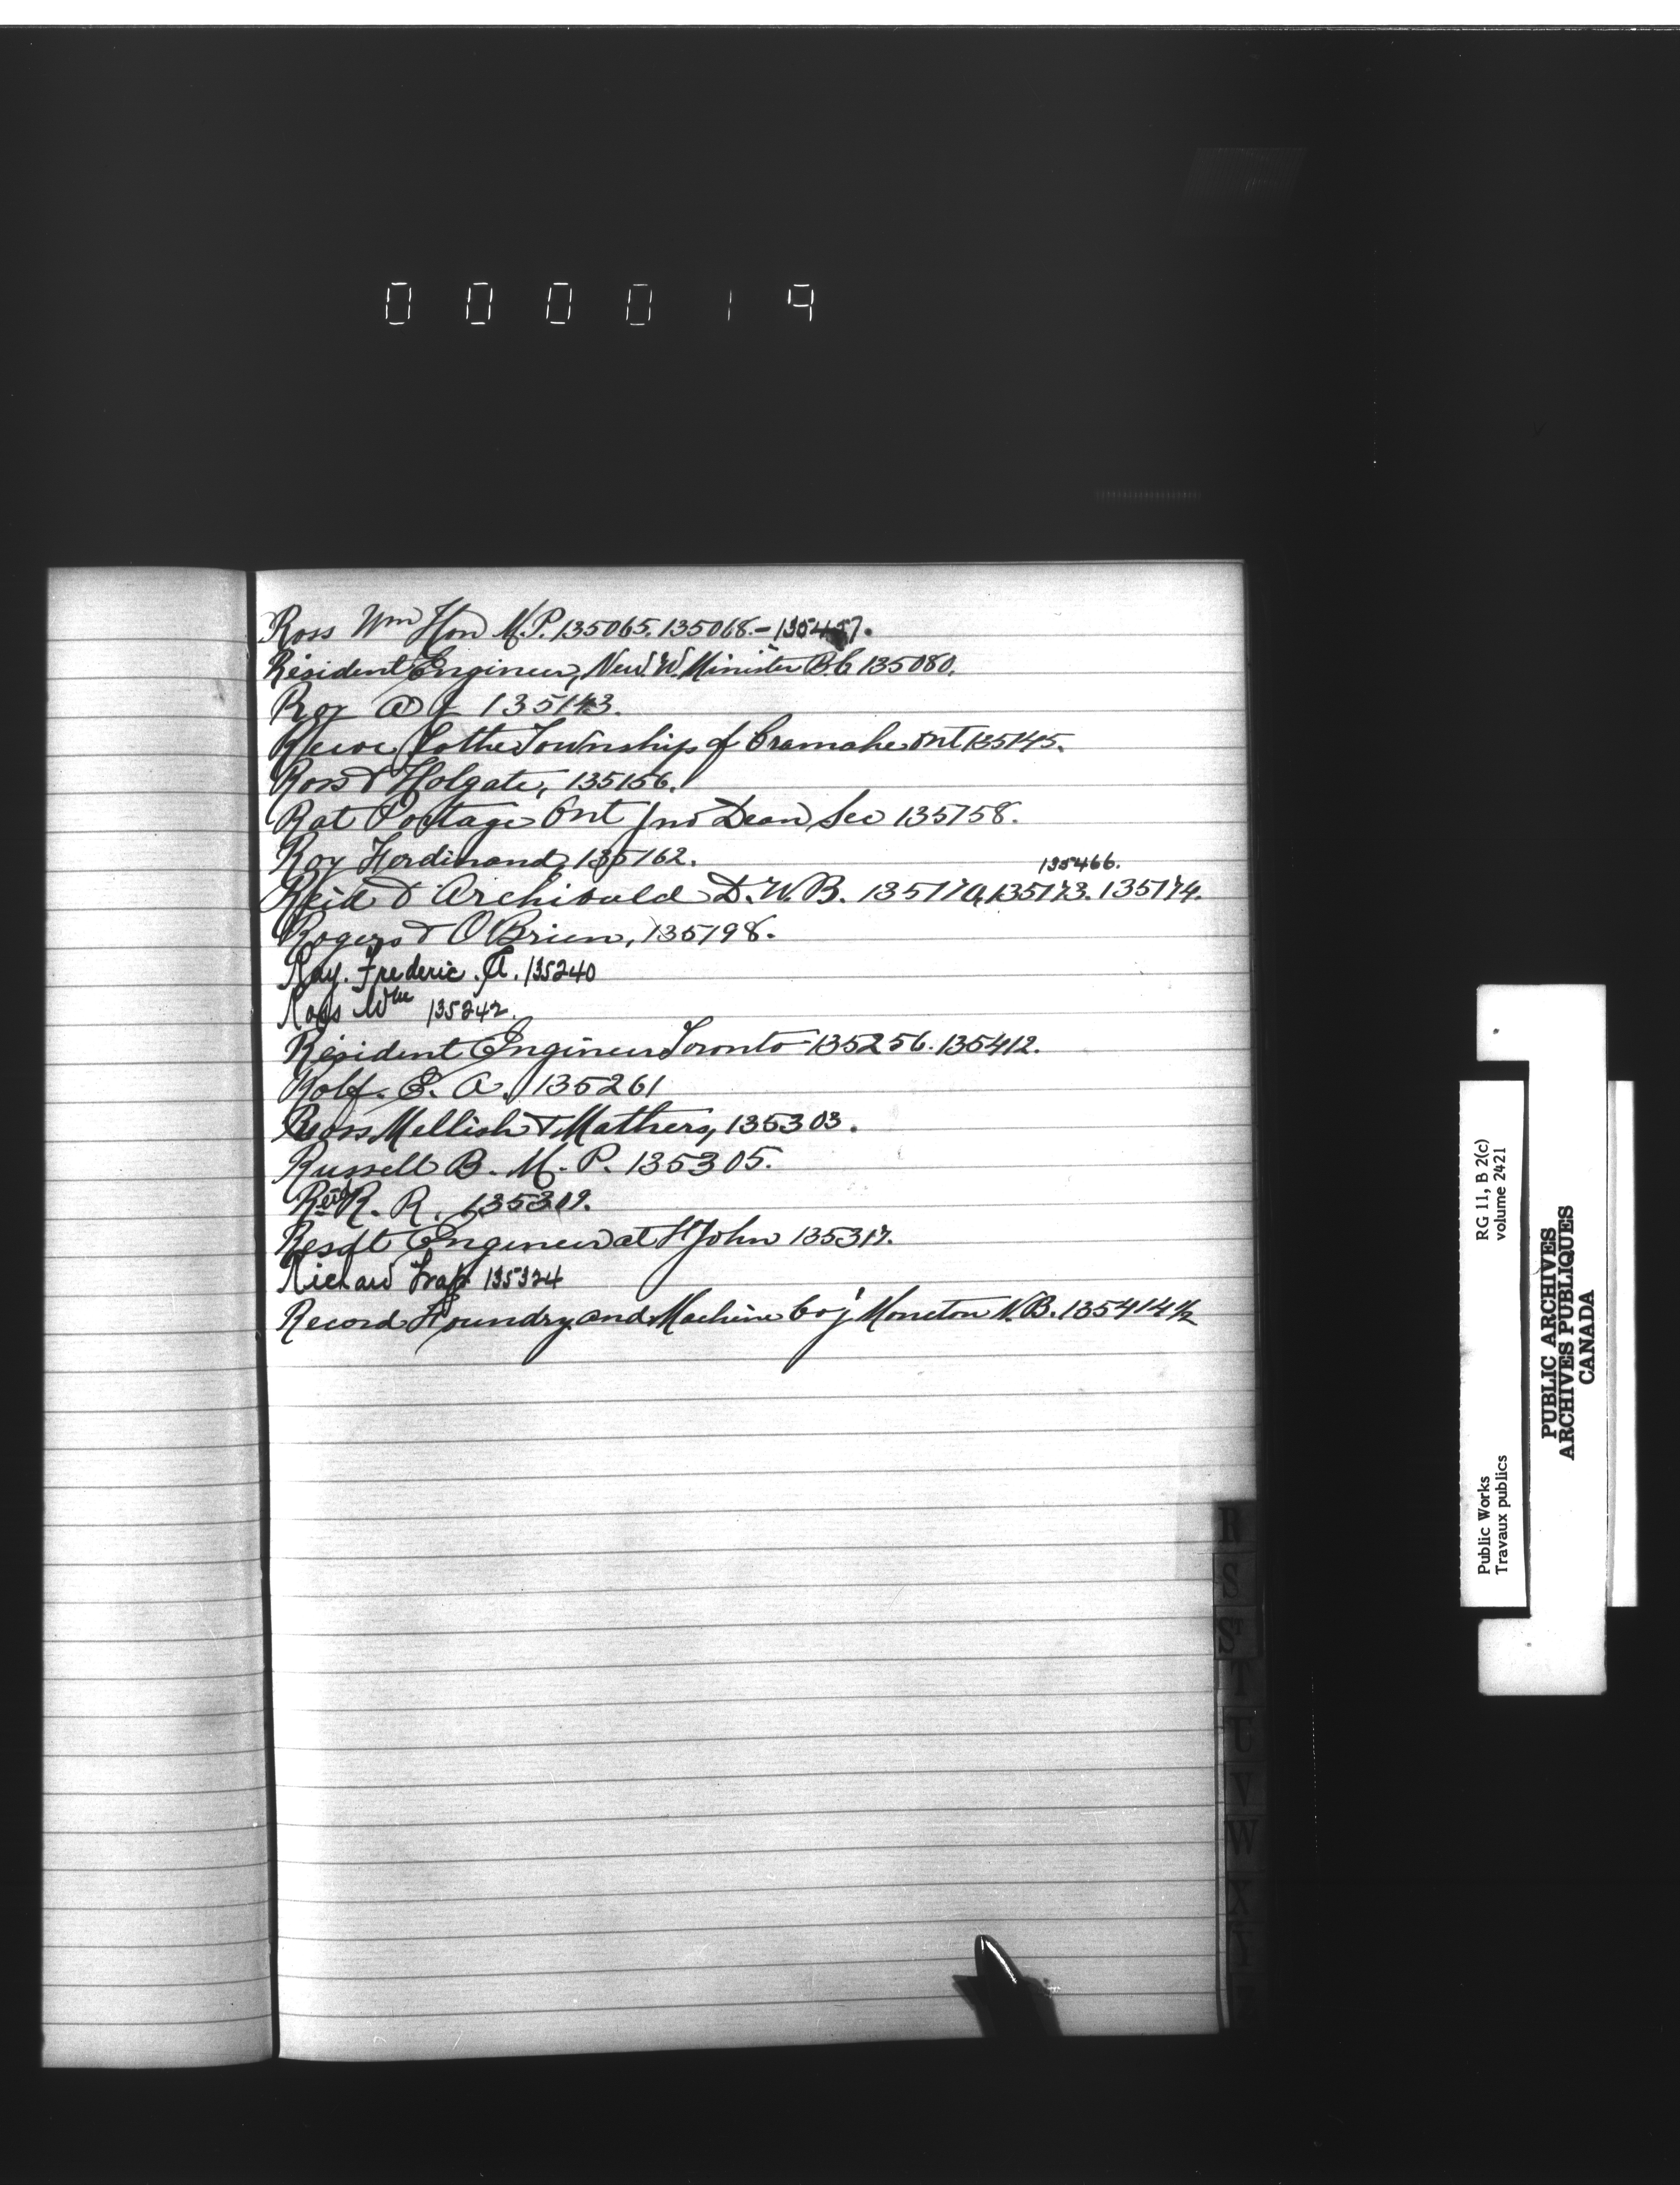 000019
Ross Wm Hon M.P. 135065. 135068.-135457.
Resident Engineer, New W. Minister B.C 135080.
Roy 135143.
Reeve Township of Cramahe Ont 135145.
Ross & Holgate, 135156.
Rat Portage Ont Jno Dean Sec 135158.
Roy Ferdinand, 135162.
135466.
Reid & Archibald D.W.B. 135170, 135173. 135174.
Rogers & O'Brien, 135198.
Ray. Frederic. A. 135240
Ross Wm 135242.
Resident Engineer Toronto 135256. 135412.
Rolf. E. A. 135261
Ross Mellish & Mathers, 135303.
Russell B. M. P. 135305.
Reid R. R. 135309.
Resdt Engineer at St John 135317.
Richard 135324
Record Foundry and Machine Coy Moncton N.B. 135414½
R
S
S
T
U
V
W
X
Y
Z
Public Works
Travaux publics
RG 11, B 2(c)
volume 2421
PUBLIC ARCHIVES
ARCHIVES PUBLIQUES
CANADA